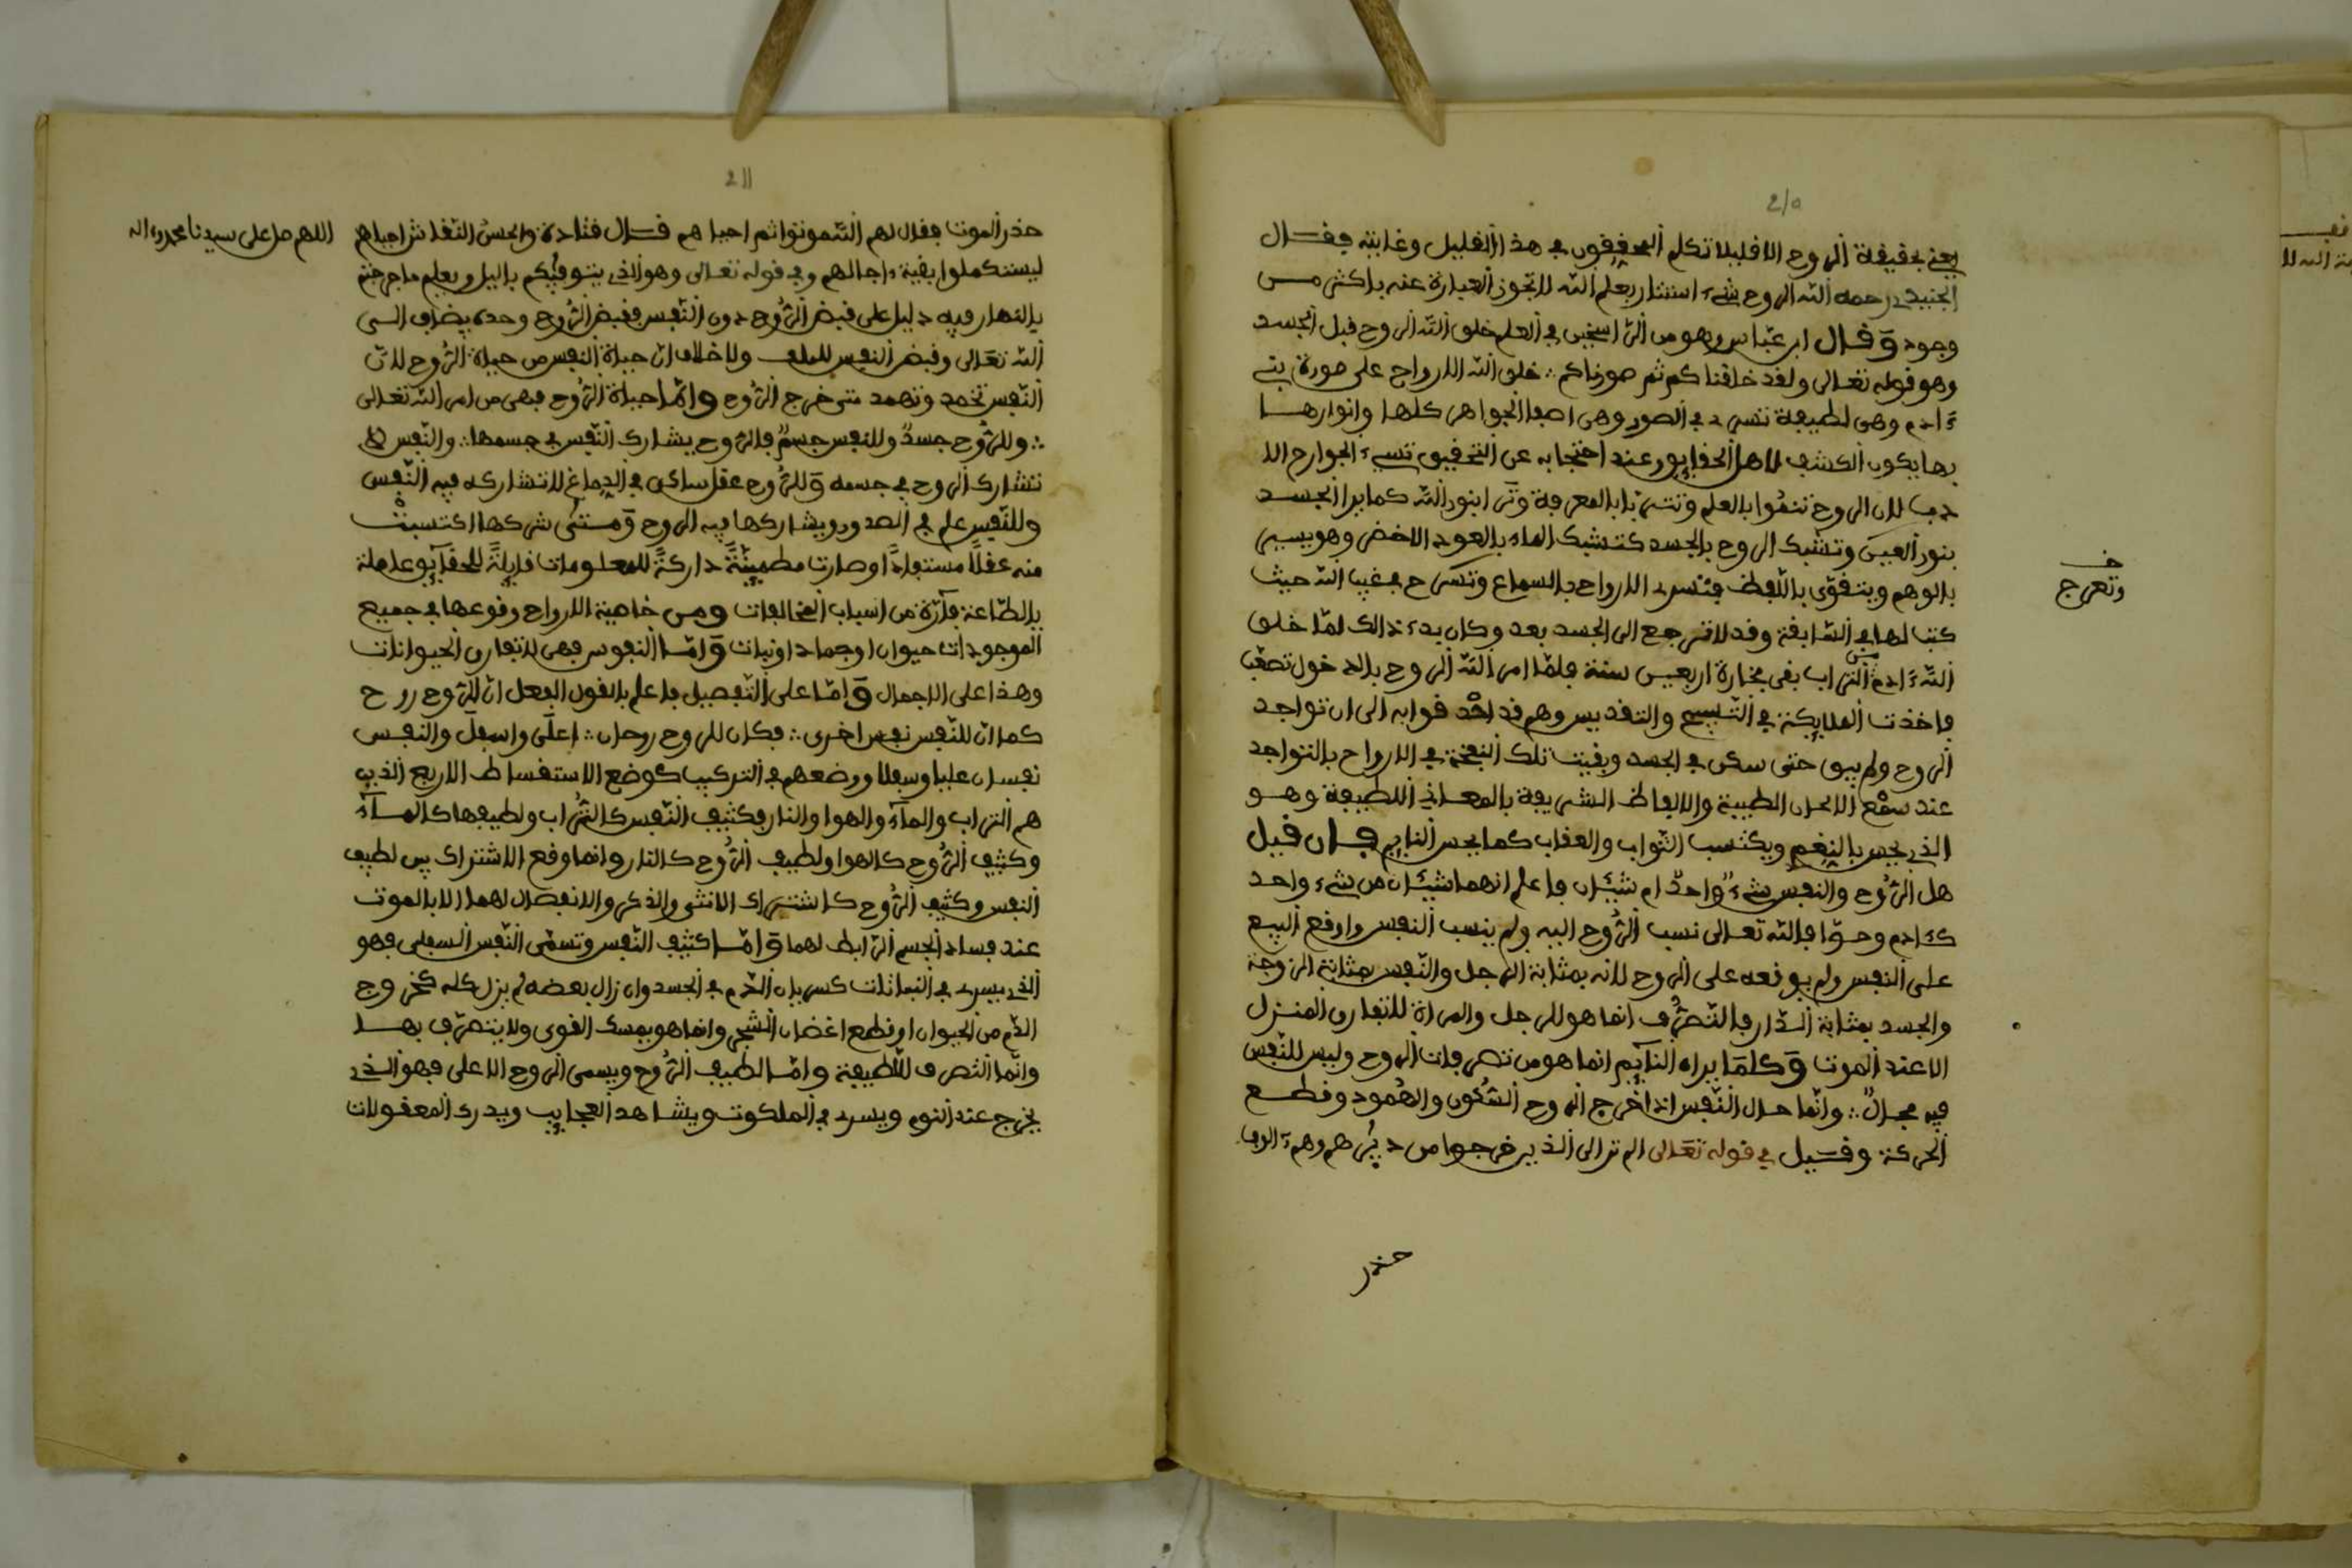 210
يعني بحقيقة الروح الا قليلا تكلم المحققون في هذا القليل وغايته فقال
الجنيد رحمه الله الروح شيء استاثر بعلم الله لا تجوز العبارة عنه باكثر من
وجود وقال ابن عباس وهو من الراسخين في العلم خلق الله الروح قبل الجسد
وهو قوله تعالى ولقد خلقناكم ثم صورناكم خلق الله الارواح على صورة بني
ءادم وهي لطيفة تسري في الصور وهي اصفا الجواهر كلها وانوارها
بها يكون الكشف لاهل الحقايق وعند احتجابه عن التحقيق تسيء الجوارح الا
دب لان الروح تتقوا بالعلم وتتربا بالمعرفة وترا بنور الله كما يرا الجسد
بنور العين وتشبك الروح بالجسد كتشبك الماء بالعود الاخضر وهو يسير
بالوهم ويتقوى باللفظ فتسري الارواح بالسماع وتسرح في غيب الله حيث
كتب لها في السابقة وقد لا ترجع الى الجسد بعد وكان بدء ذالك لما خلق
الله ءادم من التراب بقى فخارة اربعين سنة فلما امر الله الروح بالدخول تصعب
فاخذت الملايكة في التسبيح والتقديس وهم قد احدقوا به الى ان تواجد
الروح ولم يبق حتى سكن في الجسد وبقيت تلك النفخة في الارواح بالتواجد
عند سمع الالحان الطيبة والالفاظ الشريفة بالمعاني اللطيفة وهو
الذي يحس بالنعم ويكتسب الثواب والعقاب كما يحس النايم فان قيل
هل الروح والنفس شيء واحد ام شيئان فاعلم انهما شيئان من شيء واحد
كءادم وحوا فالله تعالى نسب الروح اليه ولم ينسب النفس واوقع البيع
على النفس ولم يوقعه على الروح لانه بمثابة الرجل والنفس بمثابة الزوجة
والجسد بمثابة الدار فالتصرف انما هو للرجل والمراة لا تفارق المنزل
الا عند الموت وكلما يراه النايم انما هو من تصرفات الروح وليس للنفس
فيه مجال وانما حال النفس اذا خرج الروح السكون والهمود وقطع
الحركة وقيل في قوله تعالى الم تر الى الذين خرجوا من ديرهم وهم ءالوف
حذر
وتعرج
211
حذر الموت فقال لهم الله موتوا ثم احياهم قال قتادة والحسن الثقات ثم احياهم
اللهم صل على سيدنا محمد وءاله
ليستكملوا بقية ءاجالهم وفي قوله تعالى وهو الذي يتوفيكم باليل ويعلم ما جرحتم
بالنهار فيه دليل على قبض الروح دون النفس فقبض الروح وحده يضاف الى
الله تعالى وقبض النفس للملك ولا خلاف ان حياة النفس من حياة الروح لان
النفس تخمد وتهمد متى خرج الروح واما حياة الروح فهي من امر الله تعالى
وللروح جسد وللنفس جسم فالروح يشارك النفس في جسمها والنفس لا
تشارك الروح في جسمه وللروح عقل ساكن في الدماغ لا تشاركه فيه النفس
وللنفس علم في الصدور ويشاركها فيه الروح ومتى شركها اكتسبت
منه عقلا مستفادا وصارت مطمينة داركة للمعلومات قابلة للحقايق عاملة
بالطاعة فارة من اسباب المخالفات ومن خاصية الارواح وقوعها في جميع
الموجودات حيوان او جماد او نبات واما النفوس فهي لا تفارق الحيوانات
وهذا على الاجمال واما على التفصيل فاعلم بالقول الفصل ان للروح روح
كما ان للنفس نفس اخرى فكان للروح روحان اعلى واسفل والنفس
نفسان عليا وسفلا ووضعهم في التركيب كوضع الاستقساط الاربع الذين
هم التراب والماء والهوا والنار فكثيف النفس كالتراب ولطيفها كالماء
وكثيف الروح كالهوا ولطيف الروح كالنار وانما وقع الاشتراك بين لطيف
النفس وكثيف الروح كاشتراك الانثى والذكر والانفصال لهما الا بالموت
عند فساد الجسم الرابط لهما واما كثيف النفس وتسمى النفس السفلى فهو
الذي يسري في النباتات كسريان الدم في الجسد وان زال بعضه لم يزل كله كخروج
الدم من الحيوان او قطع اغضان الشجر وانما هو يمسك القوى ولا يتصرف بها
وانما التصرف للطيفة واما لطيف الروح ويسمى الروح الاعلى فهو الذي
يخرج عند النوم ويسري في الملكوت ويشاهد العجايب ويدرك المعقولات